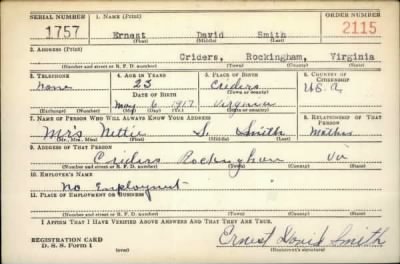 SERIAL NUMBER 1. NAME (Print) ORDER NUMBER
1757 Ernest David Smith 2115
(First) (Middle) (Last)
2. ADDRESS (Print)
Criders, Rockingham, Virginia
(Number and street or R. F. D. number) (Town) (County) (State)
3. TELEPHONE 4. AGE IN YEARS 5. PLACE OF BIRTH 6. COUNTRY OF CITIZENSHIP
None 23 Criders U.S.A.
DATE OF BIRTH (Town or county)
May 6 1917 Virginia
(Exchange) (Number) (Mo.) (Day) (Yr.) (State or country)
7. NAME OF PERSON WHO WILL ALWAYS KNOW YOUR ADDRESS 8. RELATIONSHIP OF THAT PERSON
Mrs Nettie S. Smith Mother
(Mr., Mrs., Miss) (First) (Middle) (Last)
9. ADDRESS OF THAT PERSON
Criders Rockingham Va
(Number and street or R. F. D. number) (Town) (County) (State)
10. EMPLOYER'S NAME
No Employment
11. PLACE OF EMPLOYMENT OR BUSINESS
(Number and street or R. F. D. number) (Town) (County) (State)
I AFFIRM THAT I HAVE VERIFIED ABOVE ANSWERS AND THAT THEY ARE TRUE.
REGISTRATION CARD
D. S. S. FORM 1 (over) Ernest David Smith
(Registrant's signature)